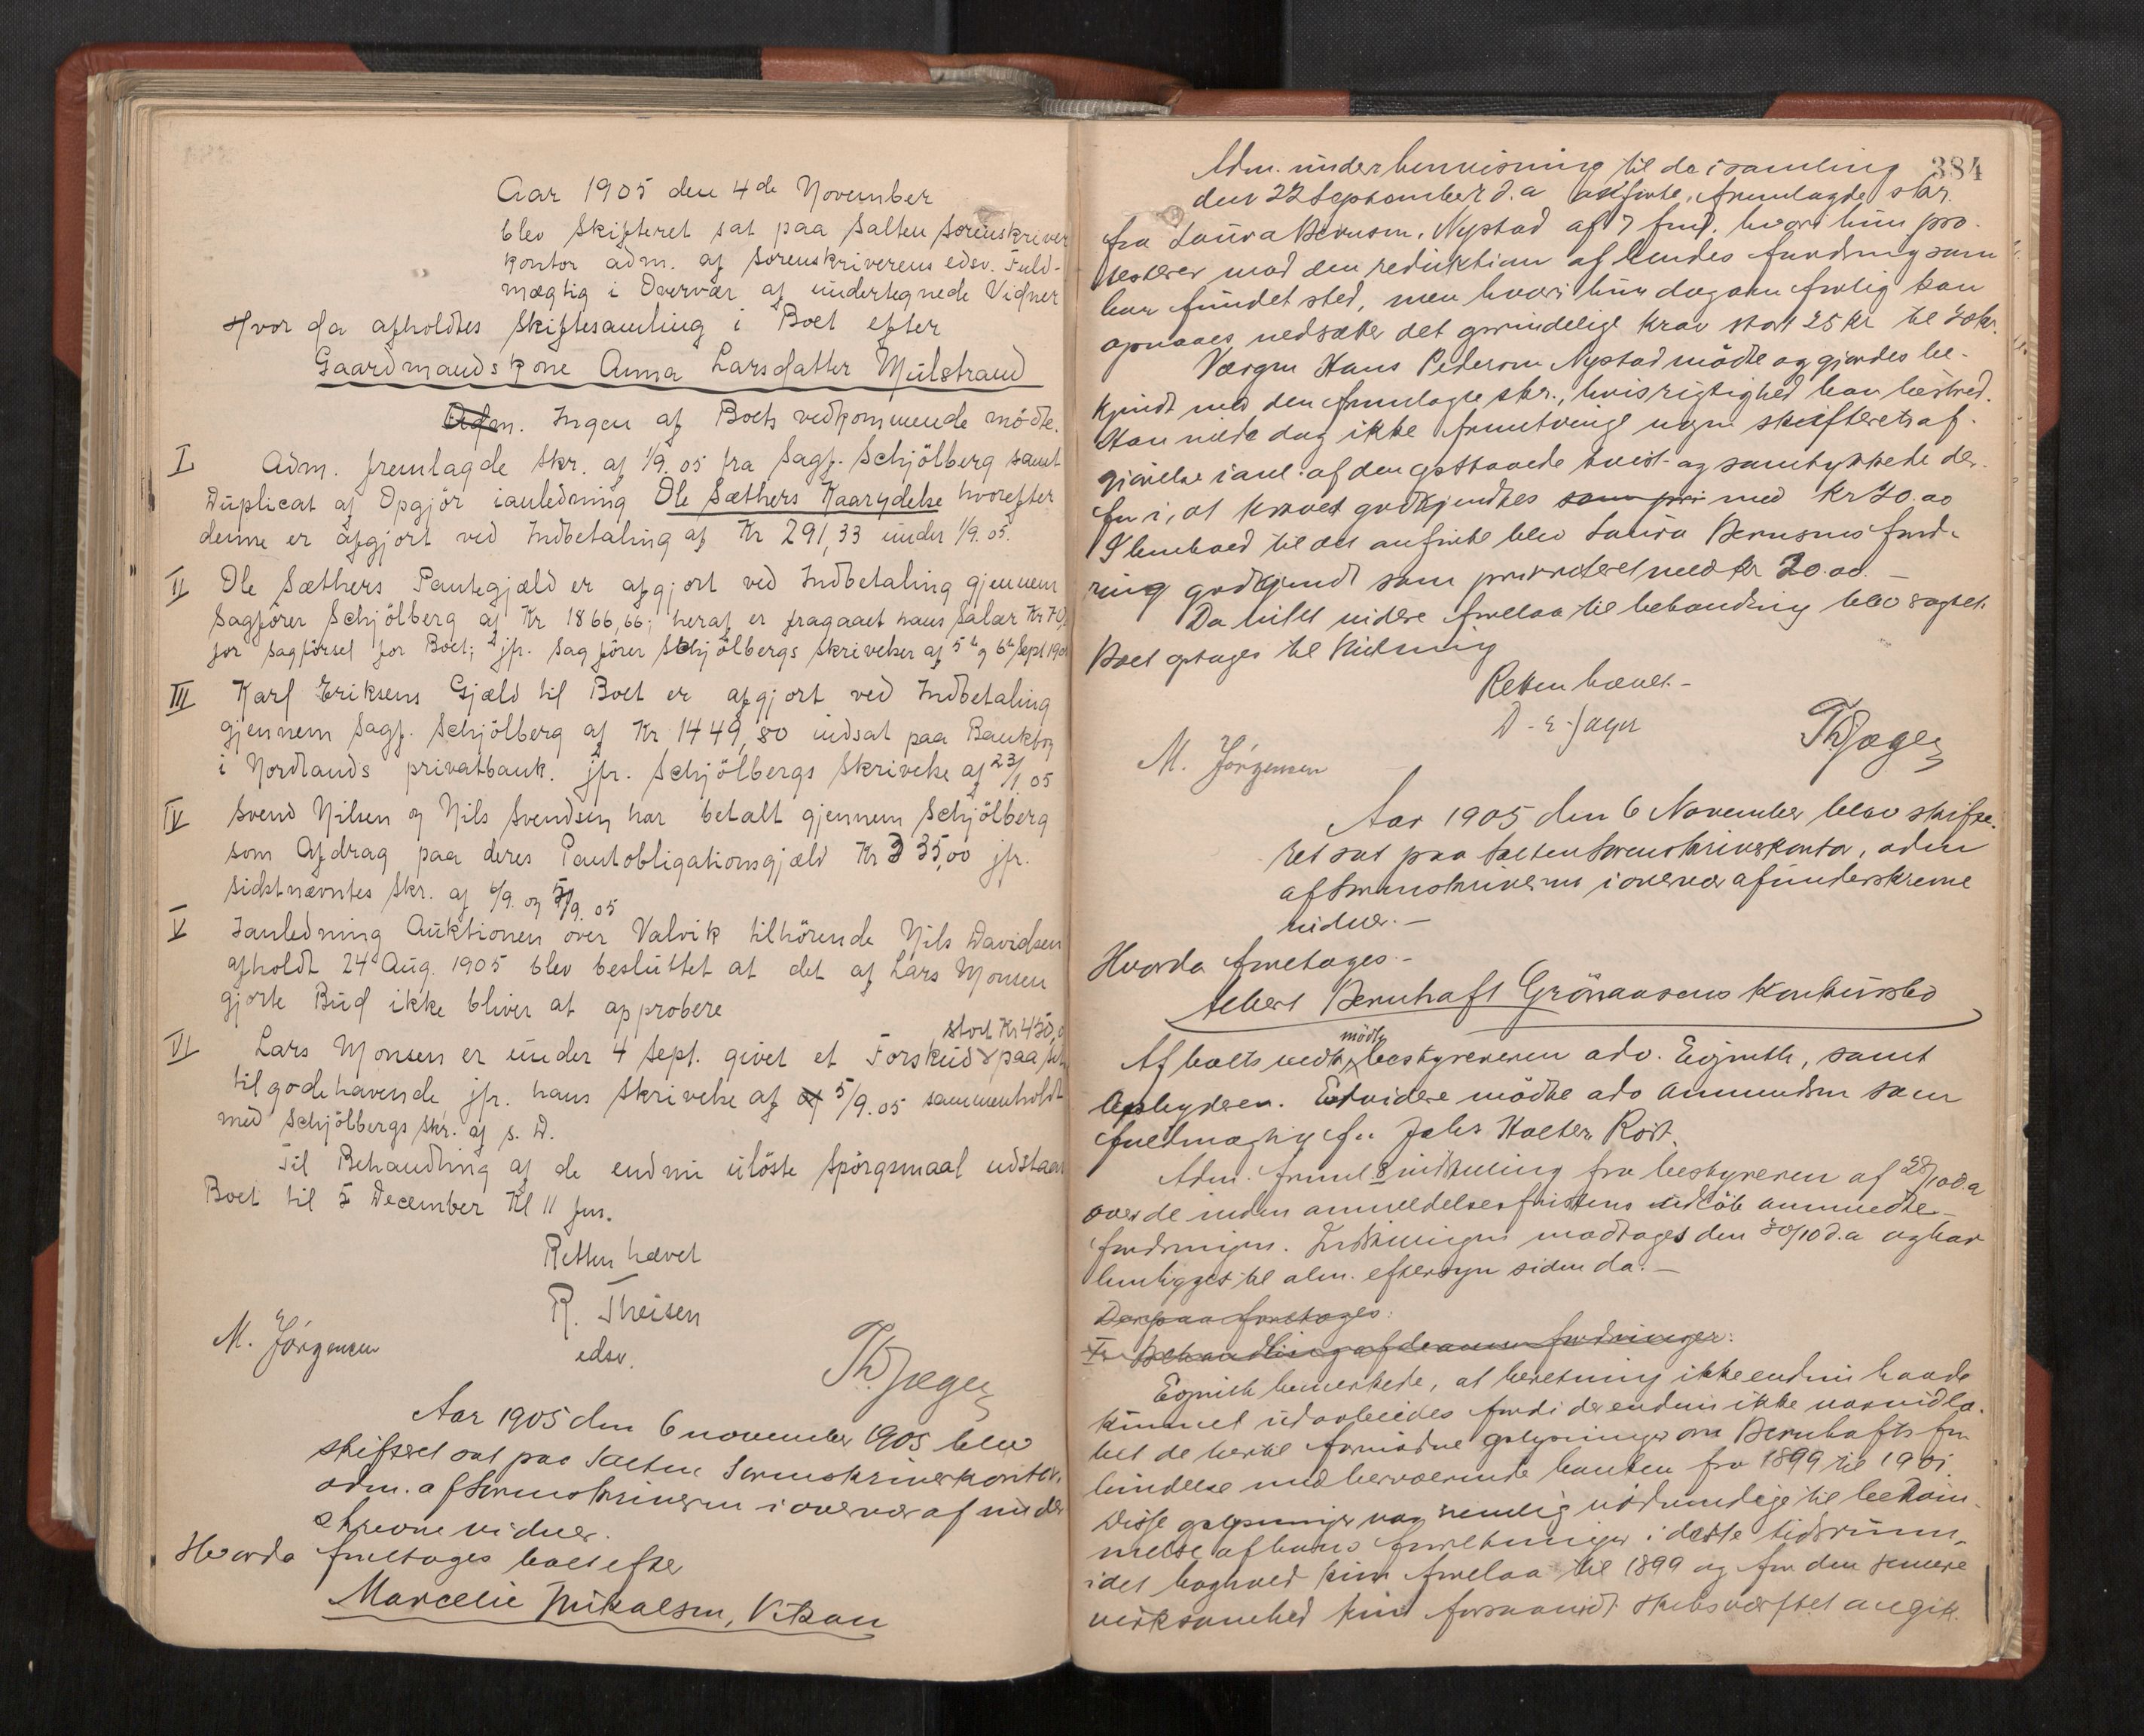 Aar 1905 den 4de November
blev Skifteret sat paa Salten Sorenskriver
kontor adm. af Sorenskriverens edsv. Fuld-
mægtig i Overvær af undertegnede Vidner
Hvor da afholdtes Skiftesamling i Boet efter
Gaardmandskone Anna Larsdatter Mulstrand
Adm. Ingen af Boets vedkommende mödte.
I Adm. fremlagde Skr. af 1/9. 05 fra Sagf. Schjölberg samt
Duplicat af Opgjör ianledning Ole Sæthers Kaarydelse hvorefter
denne er afgjort ved Indbetaling af Kr 291,33 under 1/9. 05.
II Ole Sæthers Pantegjæld er afgjort ved Indbetaling gjennem
Sagförer Schjölberg af Kr 1866,66; heraf er fragaaet hans Salær Kr
for Sagförsel for Boet; jfr. Sagförer Schjölbergs Skrivelser af 5te og 6te Sept 1905
III Karl Eriksens Gjæld til Boet er afgjort ved Indbetaling
gjennem Sagf. Schjölberg af Kr 1449,80 indsat paa Bankbog
i Nordlands privatbank. jfr. Schjölbergs Skrivelse af 23/1 05
IV Svend Nilsen og Nils Svendsen har betalt gjennem Schjölberg
som Afdrag paa deres Pantobligationsgjæld Kr 335,00 jfr.
sidstnævntes Skr. af 6/9. og 5/9. 05
V Ianledning Auktionen over Valvik tilhörende Nils Davidsen
afholdt 24 Aug. 1905 blev besluttet at det af Lars Monsen
gjorte Bud ikke bliver at approbere
stort Kr 450,
VI Lars Monsen er under 4 Sept. givet et Forskud paa sit
tilgodehavende jfr. hans Skrivelse af 5/9. 05 sammenholdt
med Schjölbergs Skr. af s. D.
Til Behandling af de endnu ulöste Spörgsmaal udstaar
Boet til 5 December Kl 11 fm.
Retten hævet
R. Theisen
edsv.
M. Jörgensen
Th Jæger
Aar 1905 den 6 november 1905 blev
skifteret sat paa Salten Sorenskriverkontor,
adm. af Sorenskriveren i overvær af under
skrevne vidner.
Hvorda foretages boet efter
Marcelie Mikalsen, Vikan
384
Adm. under henvisning til de i samling
den 22 September d.a anförte, fremlagde skr.
fra Laura Bernsen, Nystad af 7 hvori hun pro-
testerer mod den reduktion af hendes fordring som
har fundet sted, men hvori hun dog om forlig kan
opnaaes nedsætter det oprindelige krav stort 25 kr til 20 kr.
Værgen Hans Pedersen Nystad mödte og gjordes be-
kjendt med den fremlagte skr., hvis rigtighed han bestred.
Han vilde dog ikke fremtvinge nogen skifterets af-
gjörelse i anl. af den opstaaede tvist og samtykkede der-
for i, at kravet godkjendtes som pri med kr 20.00
I henhold til det anförte blev Laura Bernsens ford-
ring godkjendt som prioriteret med kr 20.00. –
Da intet videre forelaa til behandling blev sagtet
Boet optages til Slutning
Retten hævet. –
D - E - Jager
M. Jörgensen
Th Jæger
Aar 1905 den 6 November blev skifte-
ret sat paa Salten Sorenskriverkontor, adm
af Sorenskriveren i overvær af underskrevne
vidner. –
Hvorda foretages –
Albert Bernhaft Grönaasens Konkursbo
mödte
Af boets vedk. bestyreren adv. Egnith, samt
Opbyderen. Endvidere mödte adv Ammundsen som
fuldmægtig for Johs Holter, Röst.
Adm. freml 8 indstilling fra bestyreren af 28/10 d.a
over de inden anmeldelsesfristens udlöb anmeldte
fordringer. Indstillingen modtoges den 30/10 d.a og har
henligget til alm. eftersyn siden da. –
Derpaa foretoges:
I. Behandling af de anm. fordringer:
Egnith bemerkede, at beretning ikke endnu havde
kunnet udarbeides fordi der endnu ikke
det de hertil fornödne oplysninger om Bernhafts for-
bindelse med herværende banken fra 1899 til 1901.
Disse oplysninger var nemlig nödvendige til bedöm-
melse af hans forretninger i dette tidsrum,
idet boghold kun forelaa til 1899 og for den senere
virksomhed kun forsaavidt skibsværftet angik.